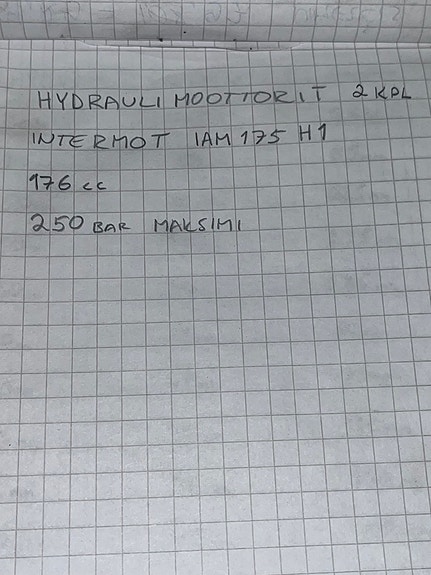 HYDRAULI MOOTTORIT 2 KPL
INTERMOT IAM 175 H1
176 cc
250 BAR MAKSIMI